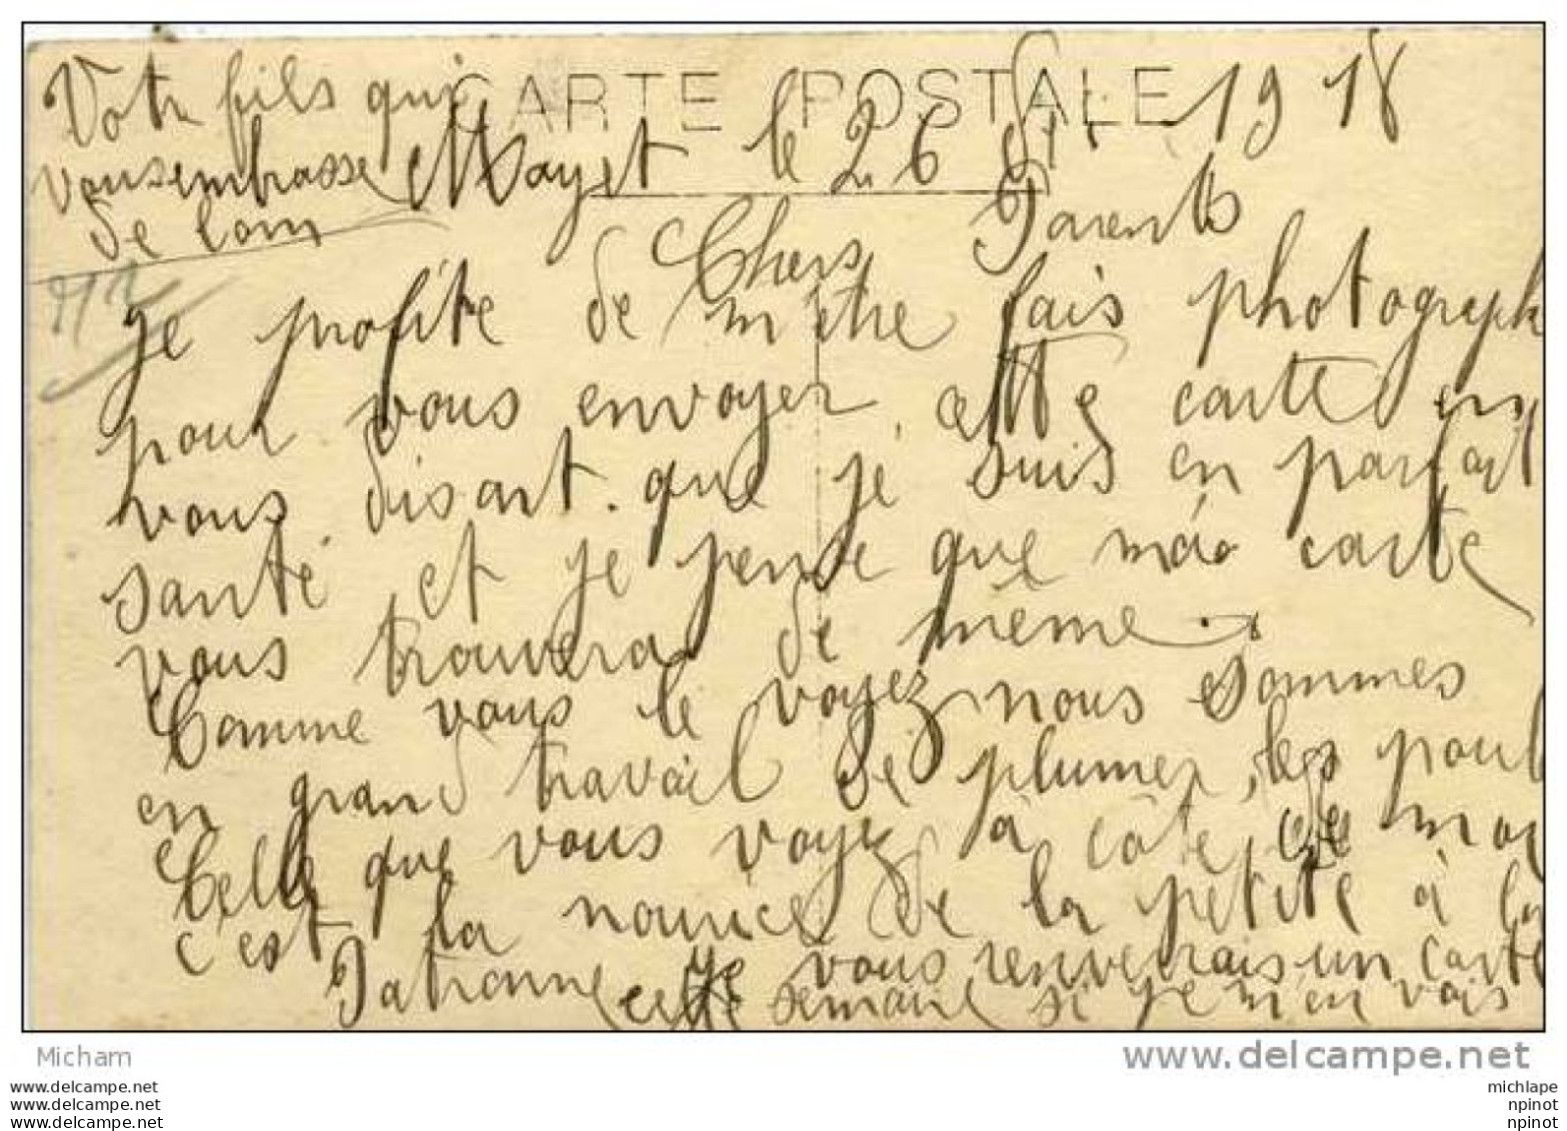 CARTE POSTALE
Votre fils qui
vous embrasse
de loin
Mayet le 26 1918
Chers Parents
je profite de m etre fais photograph
pour vous envoyer cette carte en
vous disant que je suis en parfait
santé et je pense que ma carte
vous trouvera de même
Comme vous le voyez nous sommes
en grand travail de plumer les poul
Celle que vous voyez à côte de moi
c'est la nourice de la petite à la
Patronne je vous renverrais un carte
cette semaine si je m'en vais
Micham
www.delcampe.net
www.delcampe.com
www.delcampe.com
www.delcampe.com
michlape
npinot
npinot